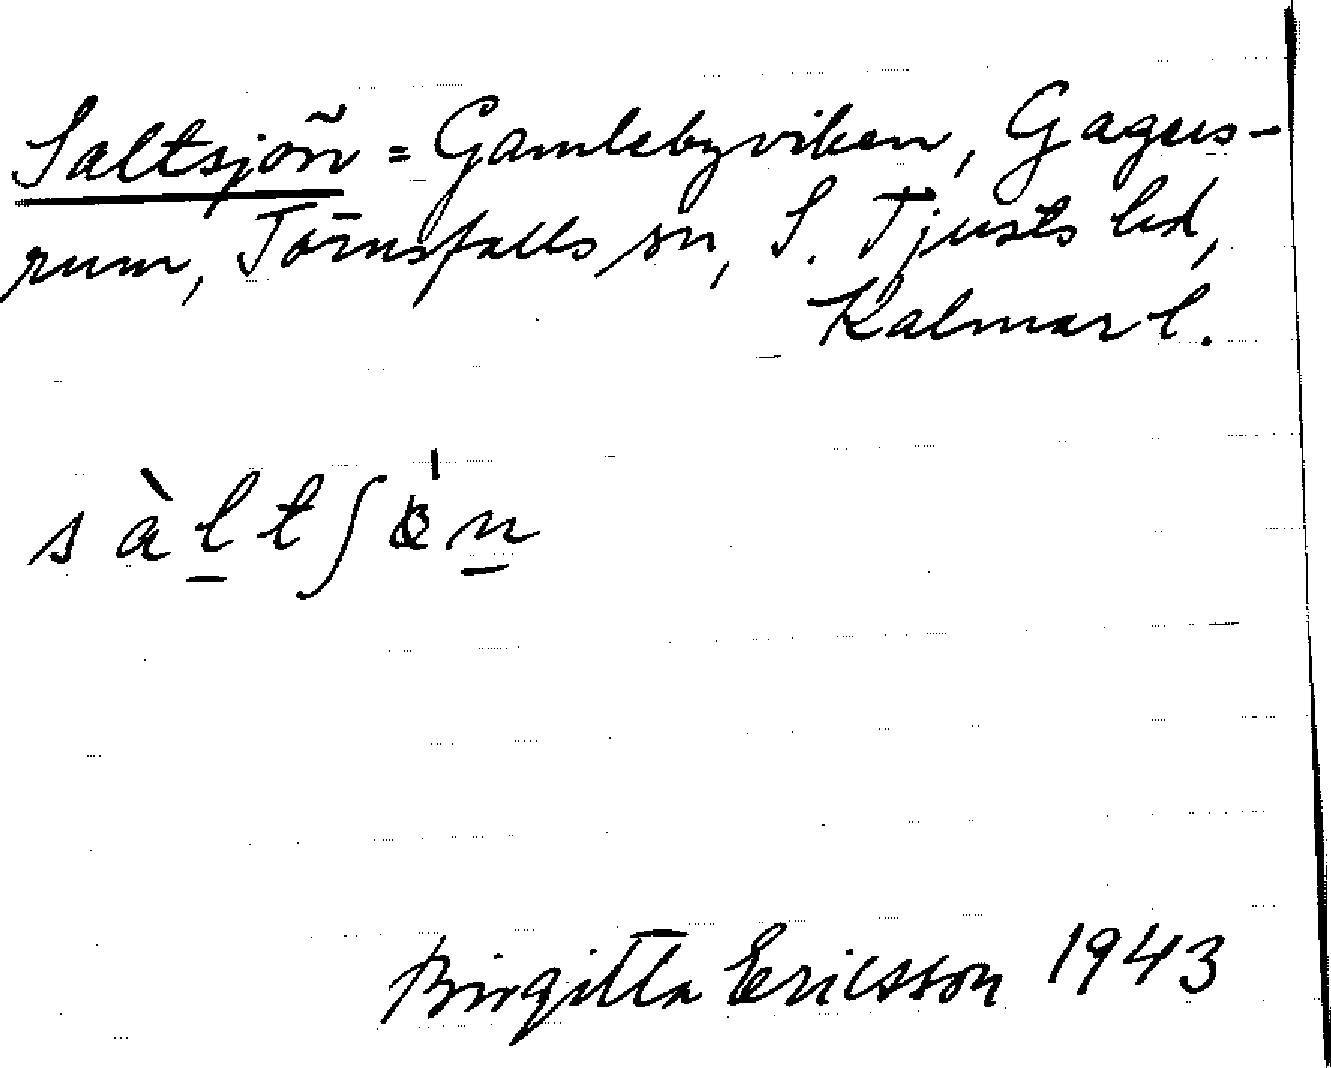 Saltsjön = Gamlebyviken, Gagers-
rum, Törnsfalls sn, S. Tjusts hd,
Kalmar l.
sàltʃön
Birgitta Ericsson 1943